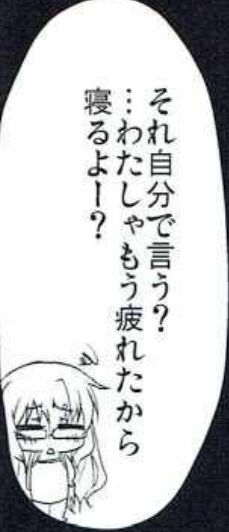 それ自分で言う?
…わたしゃもう疲れたから
寝るよー?